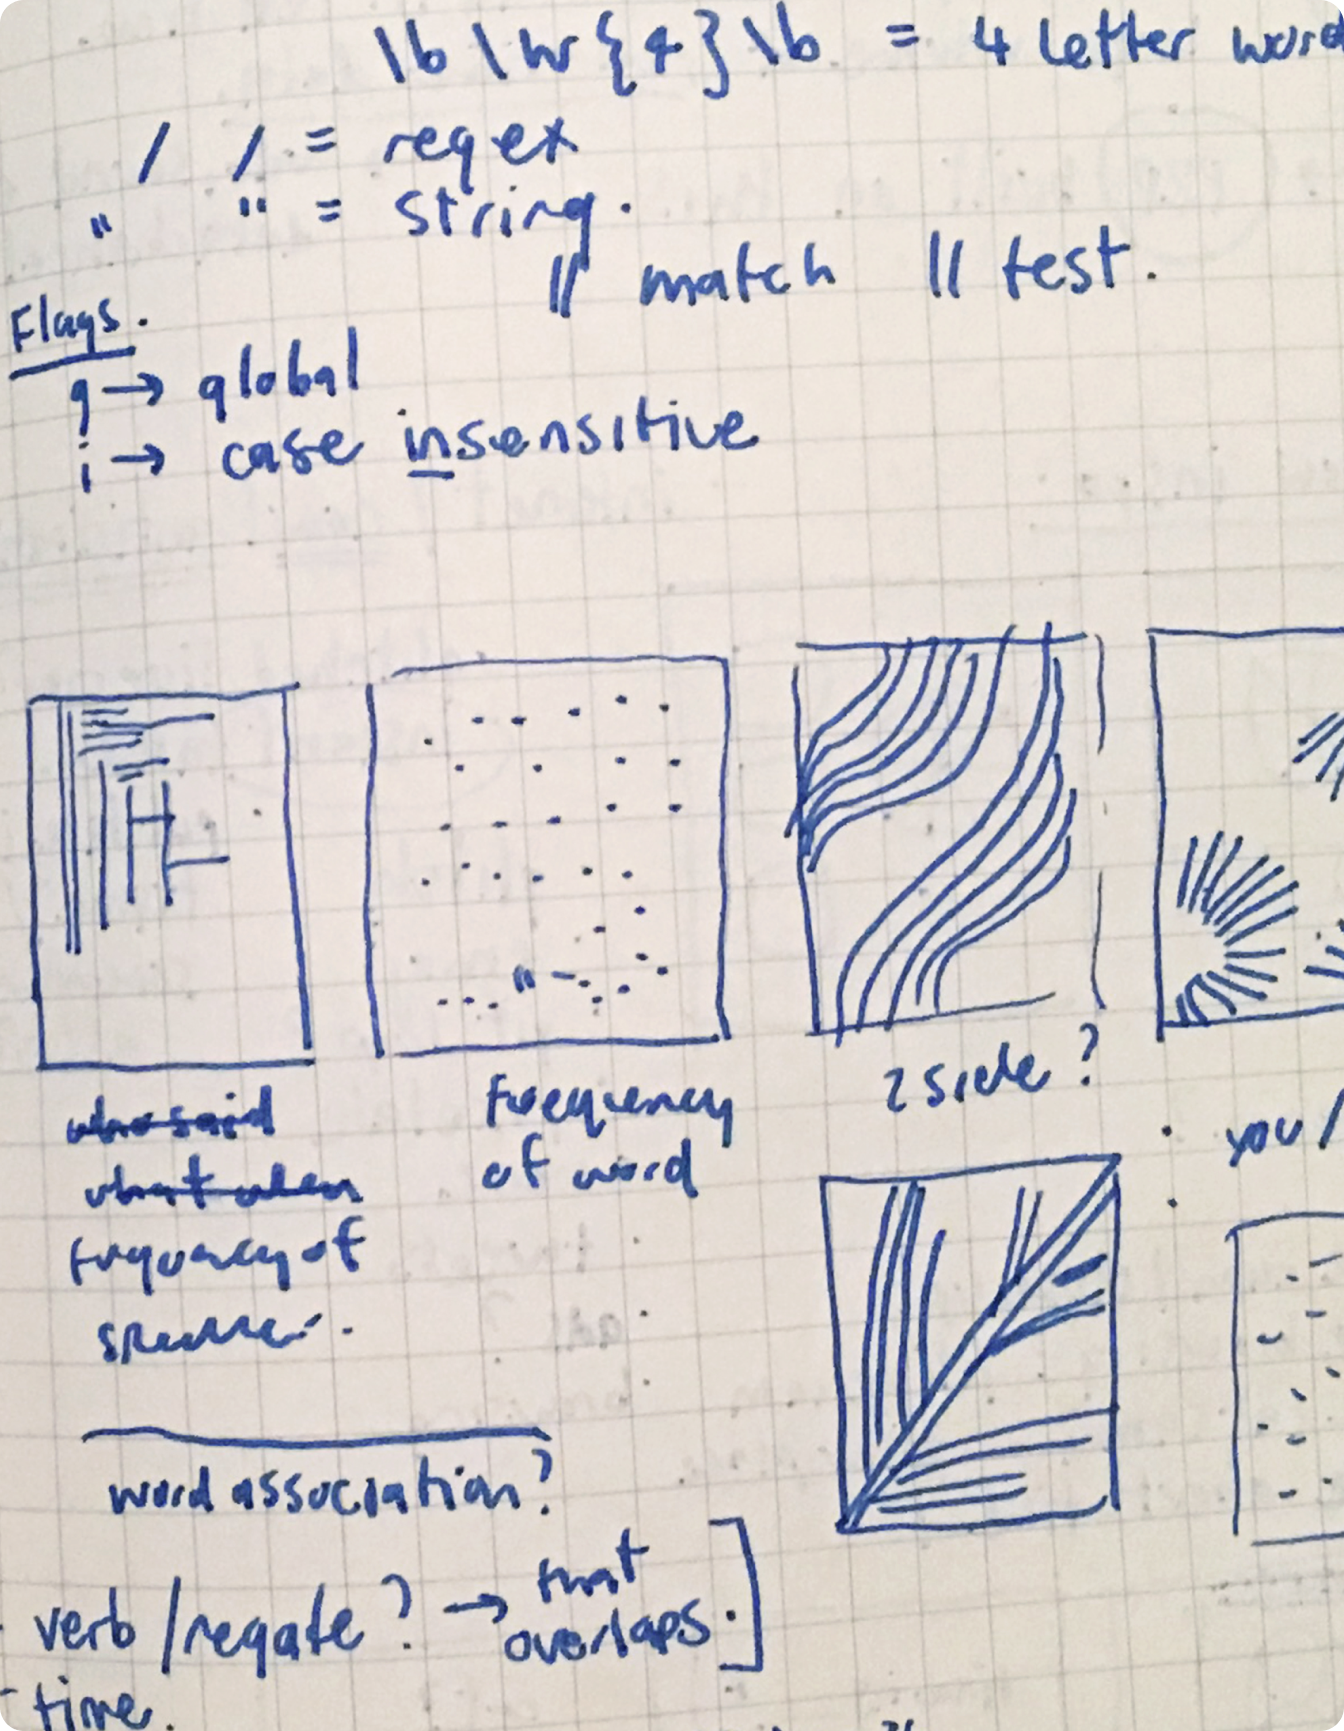 \b\w{4}\b = 4 letter word
/ / = regex
" " = string.
// match // test.
Flags.
g → global
i → case insensitive
who said
what when
frequency of
speaker.
Frequency
of word
2 side?
you/
word association?
verb/negate? → that
overlaps.
time.